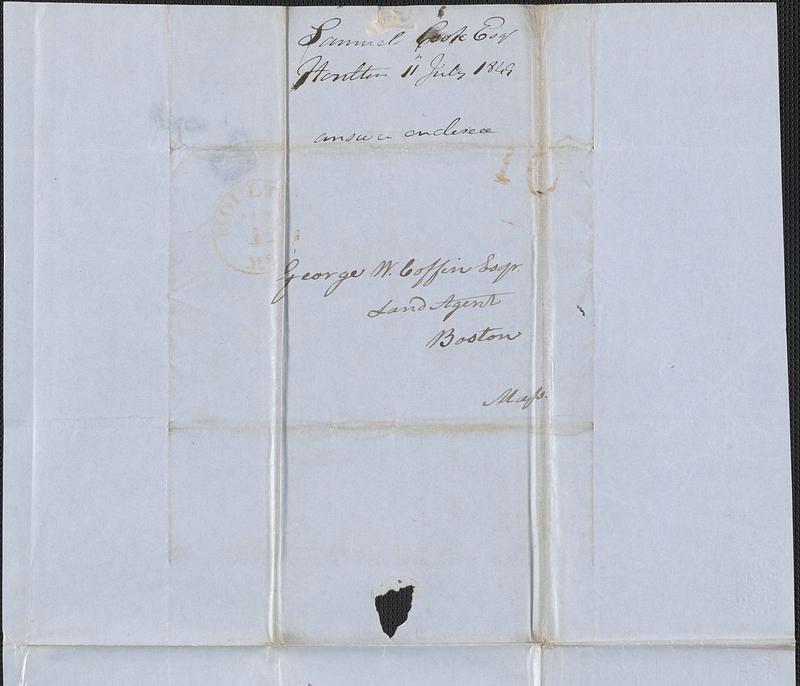 Samuel Cook Esq
Houlton 11 July 1849
answer enclosed
10
HOULT
11
ME
George W. Coffin Esqr.
Land Agent
Boston
Mass.